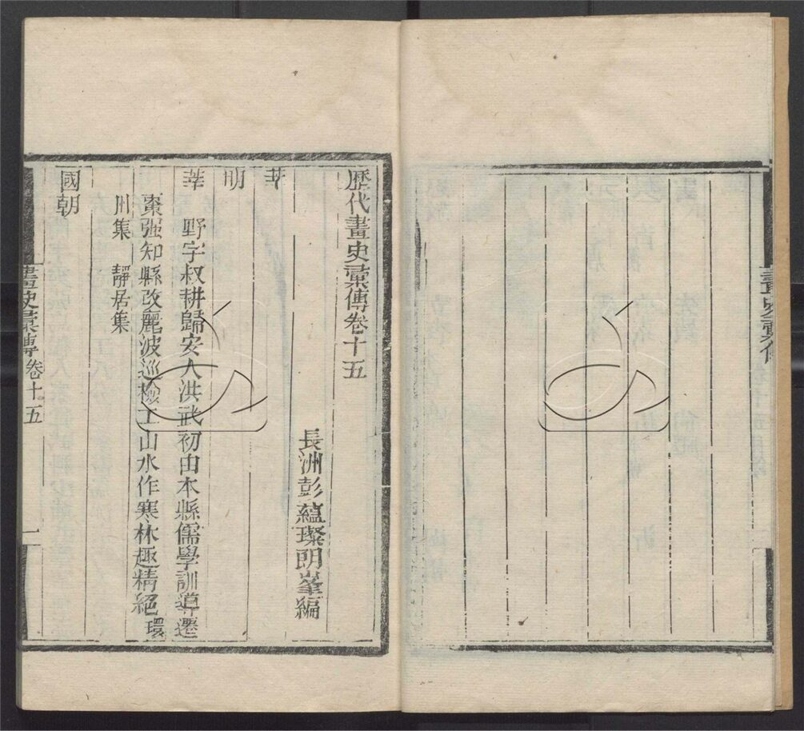 畫史彙傳
歷代畫史彙傳卷十五
長洲彭蘊璨朗峯編
莘
明
莘 野字叔耕歸安人洪武初由本縣儒學訓導遷
棗强知縣改麗波巡檢工山水作寒林趣精絕 環
川集 靜居集
國朝
畫史彙傳 卷十五 一